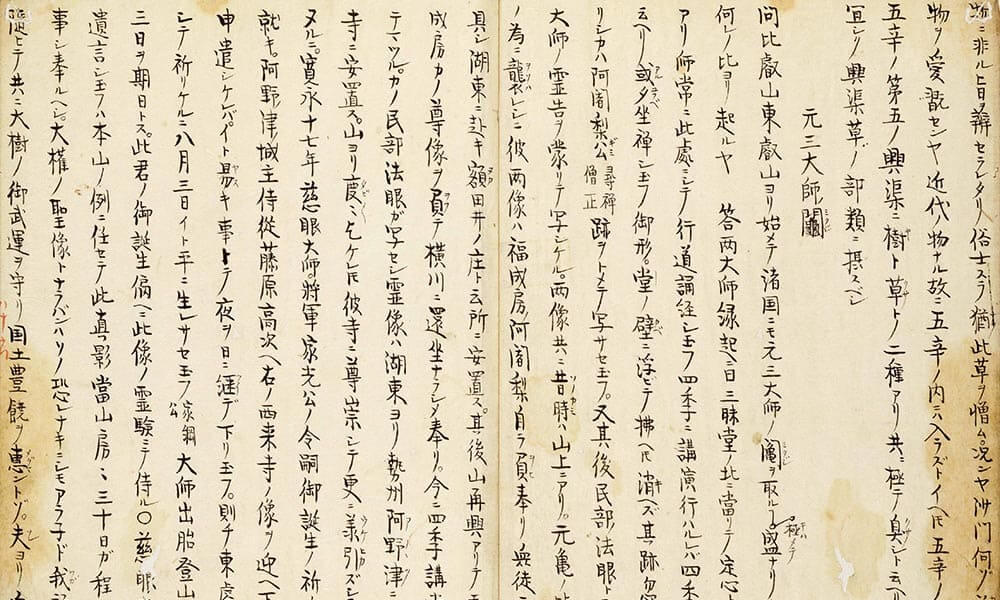 物ニ非ル旨ヲ辨セラレタリ俗士スラ猶此草ヲ憎ム况ンヤ沙門何ゾ
物ヲ愛翫センヤ近代物ナル故ニ五辛ノ内ニハ入ラズトイヘ𪜈五辛ノ
五辛ノ第五ノ興渠ニ樹ト草トノ二種アリ共ニ極テ臭シト云リ
冝シク興渠草ノ部類ニ摂スベシ
元三大師鬮
問比叡山東叡山ヨリ始メテ諸国ニモ元三大師ノ鬮ヲ取ルヿ極メテ盛ナリ
何レノ比ヨリ起ルヤ 答両大師縁起ニ曰三昧堂ノ北ニ當リテ定心
アリ師常ニ此處ニシテ行道誦経シ玉フ四季ニ講演行ハルレバ四季
云リ或夕坐禅シ玉フ御形堂ノ壁ニ浮ビテ拂ヘ𪜈消ヘズ其跡
リシカハ阿闍梨公尋禅僧正跡ヲトメテ写サセ玉フ又其後民部法眼ト
大師ノ霊告ヲ蒙リテ写シケル両像共ニ昔時ハ山上ニアリ元亀ノ
ノ為ニ襲レシニ彼両像ハ福成房阿闍梨自ラ負奉リノ兵徒
具シ湖東ニ赴キ額田井ノ庄ト云所ニ安置ス其後山再興アリテ
成房カノ尊像ヲ負テ横川ニ還坐ナラシメ奉リ今ニ四季講
テマツルカノ民部法眼ガ写セシ霊像ハ湖東ヨリ勢州阿野ノ津
寺ニ安置ス山ヨリ度々乞ケレ𪜈彼寺ニ尊崇シテ更ニ承引ズシ
ヌルニ寛永十七年慈眼大師将軍家光公ノ令嗣御誕生ノ祈
就キ阿野津城主侍從藤原高次ヘ右ノ西来寺ノ像ヲ迎ヘ下
申遣シケレバイト易キ事トテ夜ヲ日ニ継デ下リ玉フ則チ東
シテ祈リケルニ八月三日イト平ニ生レサセ玉フ家綱公大師出胎登山
三日ヲ期日トス此君ノ御誕生偏ヘニ此像ノ霊験ニテ侍ル〇慈眼
遺言シ玉フハ本山ノ例ニ任セテ此真影當山房ニ三十日ガ程
事シ奉ルヘシ大權ノ聖像トナラバンハリノ恐レナキニシモアラ子ド我
トテ共ニ大樹ノ御武運ヲ守リ国土豊饒ヲ恵ントゾ夫ヨリ